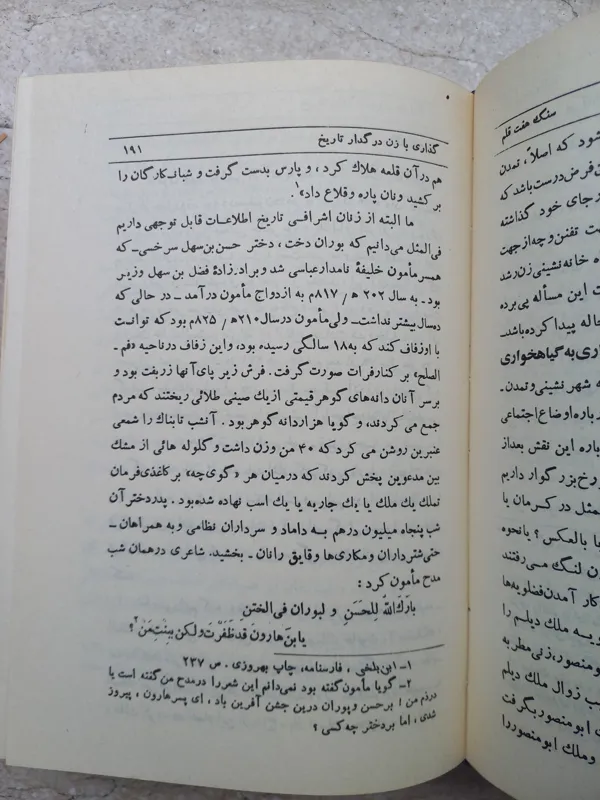 گذاری با زن در گدار تاریخ ۱۹۱
هم در آن قلعه هلاك کرد ، و پارس بدست گرفت و شبانکارگان را
بر کشید و نان پاره و قلاع داد»۱
ما البته از زنان اشرافی تاریخ اطلاعات قابل توجهی داریم
فی‌المثل می‌دانیم که بوران دخت ، دختر حسن بن سهل سرخسی ـ که
همسر مأمون خلیفهٔ نامدار عباسی شد و برادرزادهٔ فضل بن سهل وزیر
بود ـ به سال ۲۰۲ ه/ ۸۱۷م به ازدواج مأمون درآمد ـ در حالی که
ده‌سال بیشتر نداشت ـ ولی مأمون در سال ۲۱۰ه/ ۸۲۵م بود که توانست
با او زفاف کند که به ۱۸ سالگی رسیده بود، و این زفاف در ناحیه «فم ـ
الصلح» بر کنار فرات صورت گرفت. فرش زیر پای آنها زربفت بود و
بر سر آنان دانه‌های گوهر قیمتی از یك صینی طلائی ریختند که مردم
جمع می کردند، و گویا هزار دانه گوهر بود . آنشب تابناك را شمعی
عنبرین روشن می کرد که ۴۰ من وزن داشت و گلوله هائی از مشك
بین مدعوین پخش کردند که درمیان هر «گوی‌چه» بر کاغذی فرمان
تملك یك ملك یا یك جاریه یا یك اسب نهاده شده بود . پدر دختر آن
شب پنجاه میلیون درهم به داماد و سرداران نظامی و به همراهان ـ
حتی شترداران و مکاری‌ها و قایق رانان ـ بخشید. شاعری درهمان شب
مدح مأمون کرد :
بارَكَ اللّٰهُ لِلحَسَنِ و لبوران فی‌الختنِ
یا بنَ هارونَ قد ظَفَرْتَ ولکن بِبِنْتِ مَنْ؟۲
۱ـ ابن بلخی ، فارسنامه، چاپ بهروزی . ص ۲۳۷
۲ـ گویا مأمون گفته بود نمی‌دانم این شعر را در مدح من گفته است یا
در ذم من ! بر حسن و بوران درین جشن آفرین باد ، ای پسر هارون، پیروز
شدی ، اما بر دختر چه کسی ؟
سنگ هفت قلم
شود که اصلاً، تمدن
فرض درست باشد که
جای خود گذاشته
تفنن و چه از جهت
خانه نشینی زن رشد
این مسأله پی برده
پیدا کرده باشد
به گیاهخواری
شهر نشینی و تمدن
باره اوضاع اجتماعی
باره این نقش بعد از
بزر گوار داریم
در کرمان یا
یا بالعکس ؟ یا نحوه
لنگ می‌رفتند
کار آمدن فضلویه‌ها
ملك دیلم را
منصور، زنی مطربه
زوال ملك دیلم
ابومنصور بگرفت
و ملك ابومنصور را